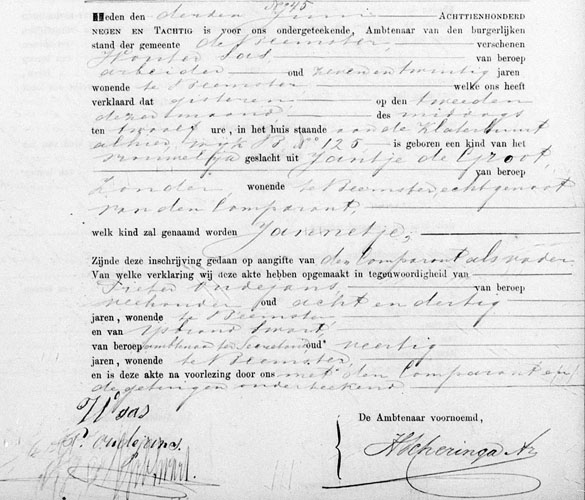 No 45
Heden den derden Juni ACHTTIENHONDERD
NEGEN EN TACHTIG is voor ons ondergeteekende, Ambtenaar van den burgerlijken
stand der gemeente de Beemster, verschenen
Wouter Sas van beroep
arbeider oud zevenentwintig jaren
wonende te Beemster welke ons heeft
verklaard dat gisteren op den tweeden
dezer maand, des middags
ten twaalf ure, in het huis staande aan de
alhier, wijk B No 125 is geboren een kind van het
vrouwelijk geslacht uit Jantje de Groot,
van beroep
zonder, wonende te Beemster, echtgenoot
van den Comparant,
welk kind zal genaamd worden Jannetje,
Zijnde deze inschrijving gedaan op aangifte van den Comparant als vader
Van welke verklaring wij deze akte hebben opgemaakt in tegenwoordigheid van
Pieter Oudejans, van beroep
veehouder oud acht en dertig
jaren, wonende te Beemster
en van IJsbrand Swart,
van beroep ambtenaar ter Secretarie oud veertig
jaren, wonende te Beemster
en is deze akte na voorlezing door ons met den Comparant en
de getuigen onderteekend
W Sas
P. Oudejans.
IJ Swart.
De Ambtenaar voornoemd,
HScheringa Az